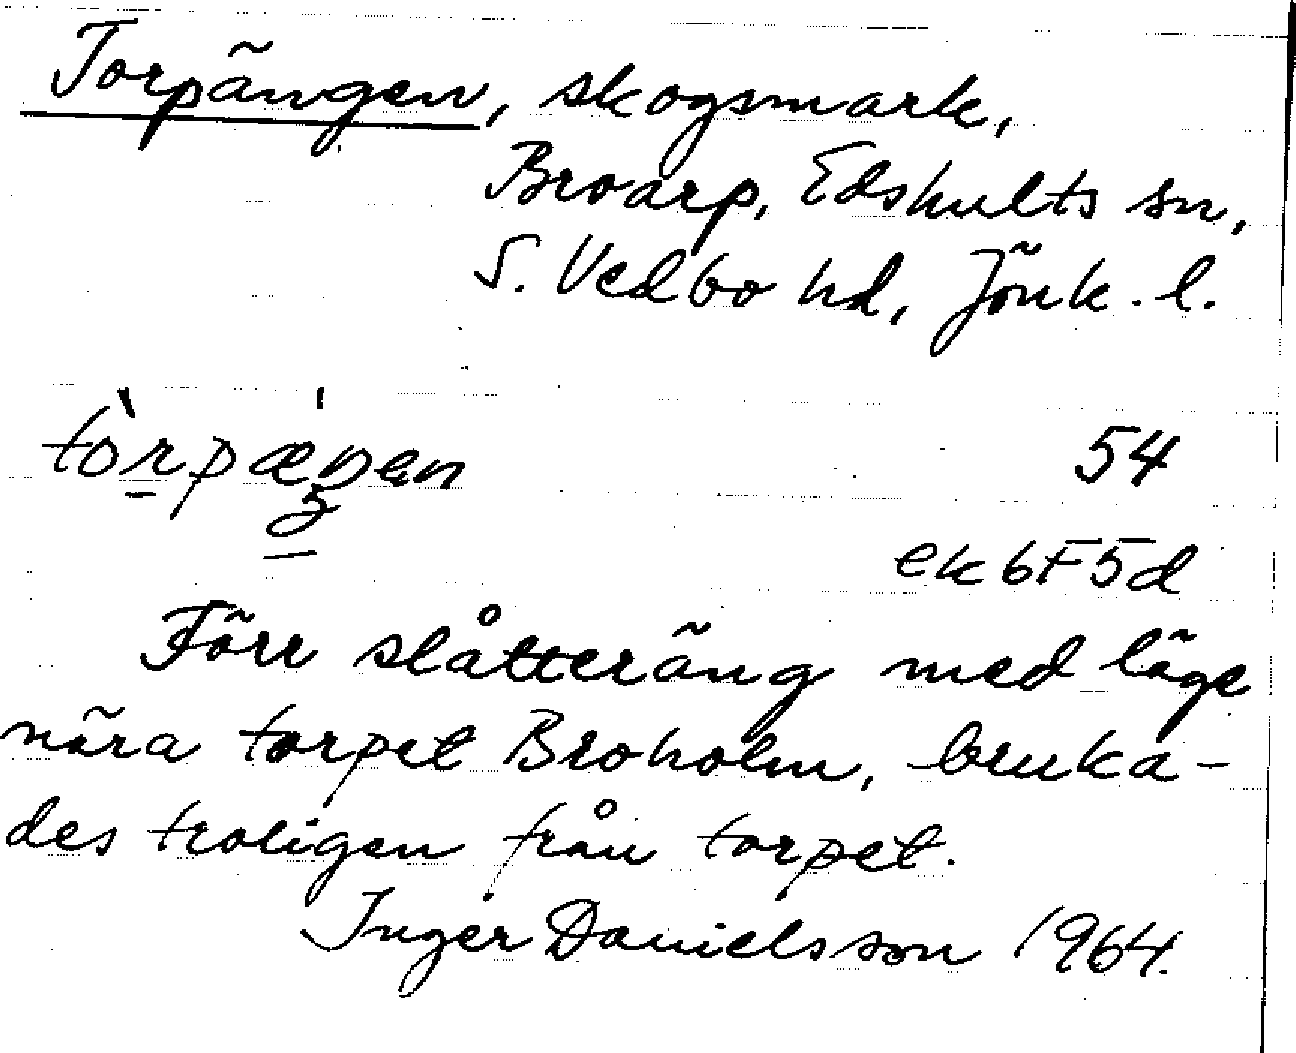 Torpängen, skogsmark,
Broarp, Edshults sn,
S. Vedbo hd, Jönk. l.
54
ek 6F5d
Förr slåtteräng med läge
nära torpet Broholm, bruka-
des troligen från torpet.
Inger Danielsson 1964.